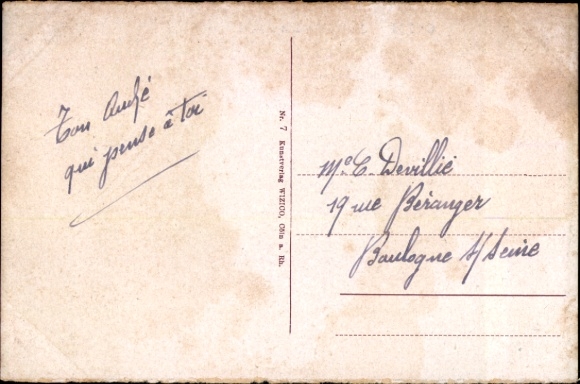 Ton André
qui pense à toi
Nr. 7 Kunstverlag WIZICO, Cöln a. Rh.
Devillié
19 rue Béranger
Boulogne s/seine